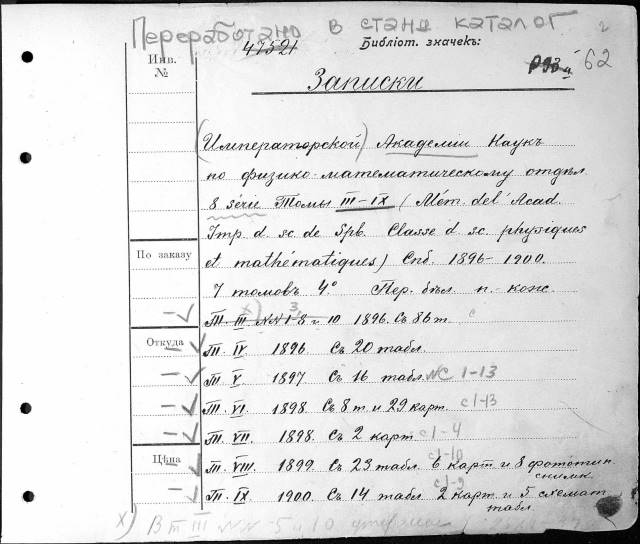 Переработано в станд каталог
47321
Библіот. значекъ:
Инв.
№
62
Записки
(Императорской) Академіи Наукъ
по физико-математическому отдѣл.
8 serie Томы III–IX (Mém. del' Acad.
Imp. d. sc. de Spb. Classe d. sc. physiques
et mathématiques) Спб. 1896–1900.
По заказу
7 томовъ 4° Пер. бѣл. п.-кож.
Т. III x) NN 1-8 и 10 1896. Съ 86 т.
Откуда
Т. IV 1896 Съ 20 табл.
Т. V. 1897 Съ 16 табл. NC 1-13
Т. VI. 1898. Съ 8 т. и 29 карт. c 1-13
Т. VII. 1898. Съ 2 карт. c 1-4
Цѣна
c 1-10
Т. VIII. 1899. Съ 23 табл. 6 карт и 8 фототип.
снимк.
c 1-9
Т. IX. 1900. Съ 14 табл. 2 карт и 5 схемат.
табл.
x) В т III NN 5 и 10